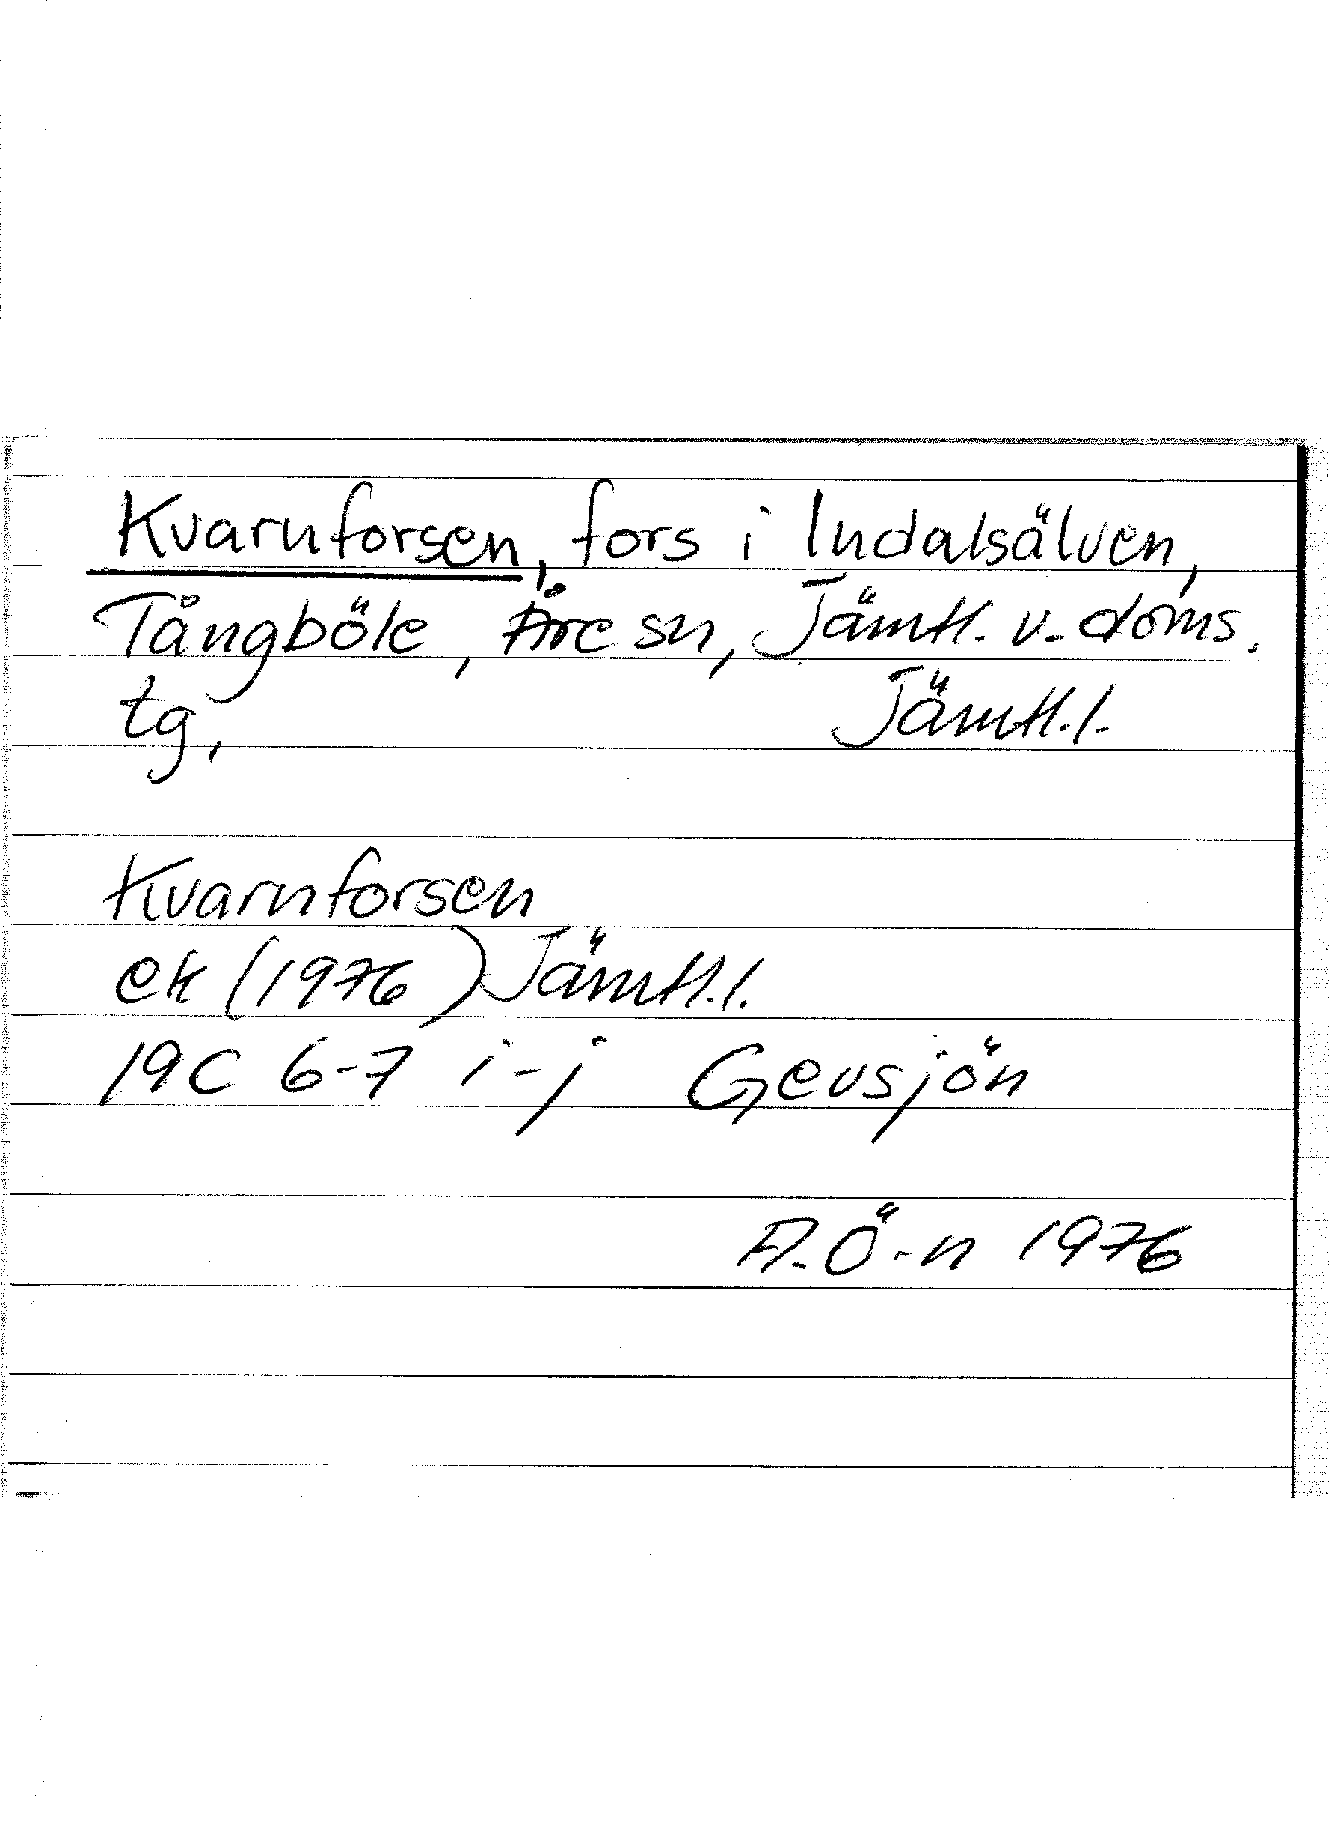 Kvarnforsen, fors i Indalsälven,
Tångböle, Åre sn, Jämtl. v. doms.
tg, Jämtl.l.
Kvarnforsen
ek (1976) Jämtl.l.
19C 6-7 i-j Gevsjön
A.Ö-n 1976